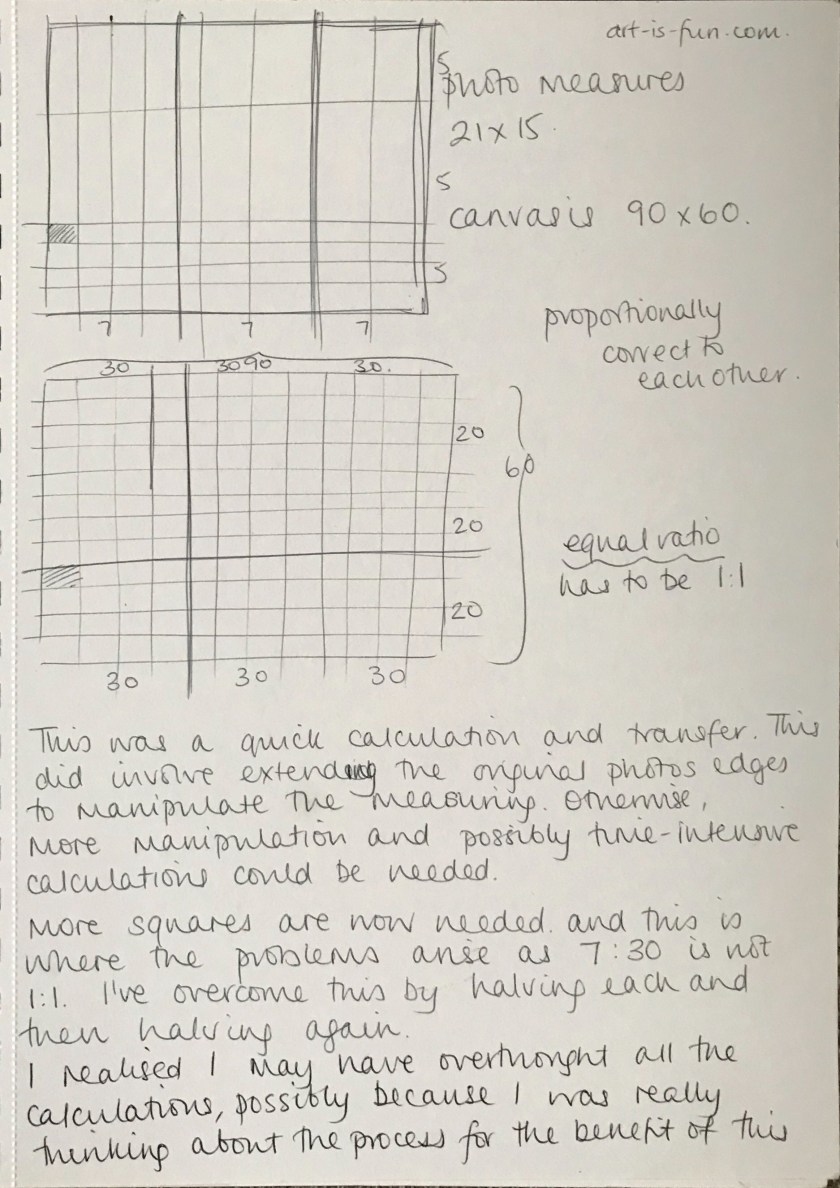 art-is-fun.com.
5
photo measures
21 x 15.
5
canvas is 90 x 60.
5
7 7 7
proportionally
correct to
each other.
30 30 90 30.
20
60
20
equal ratio
has to be 1:1
20
30 30 30
This was a quick calculation and transfer. This
did involve extending the original photos edges
to manipulate the measuring. Otherwise,
more manipulation and possibly time-intensive
calculations could be needed.
More squares are now needed. and this is
where the problems arise as 7:30 is not
1:1. I've overcome this by halving each and
then halving again.
I realised I may have overthought all the
calculations, possibly because I was really
thinking about the process for the benefit of this